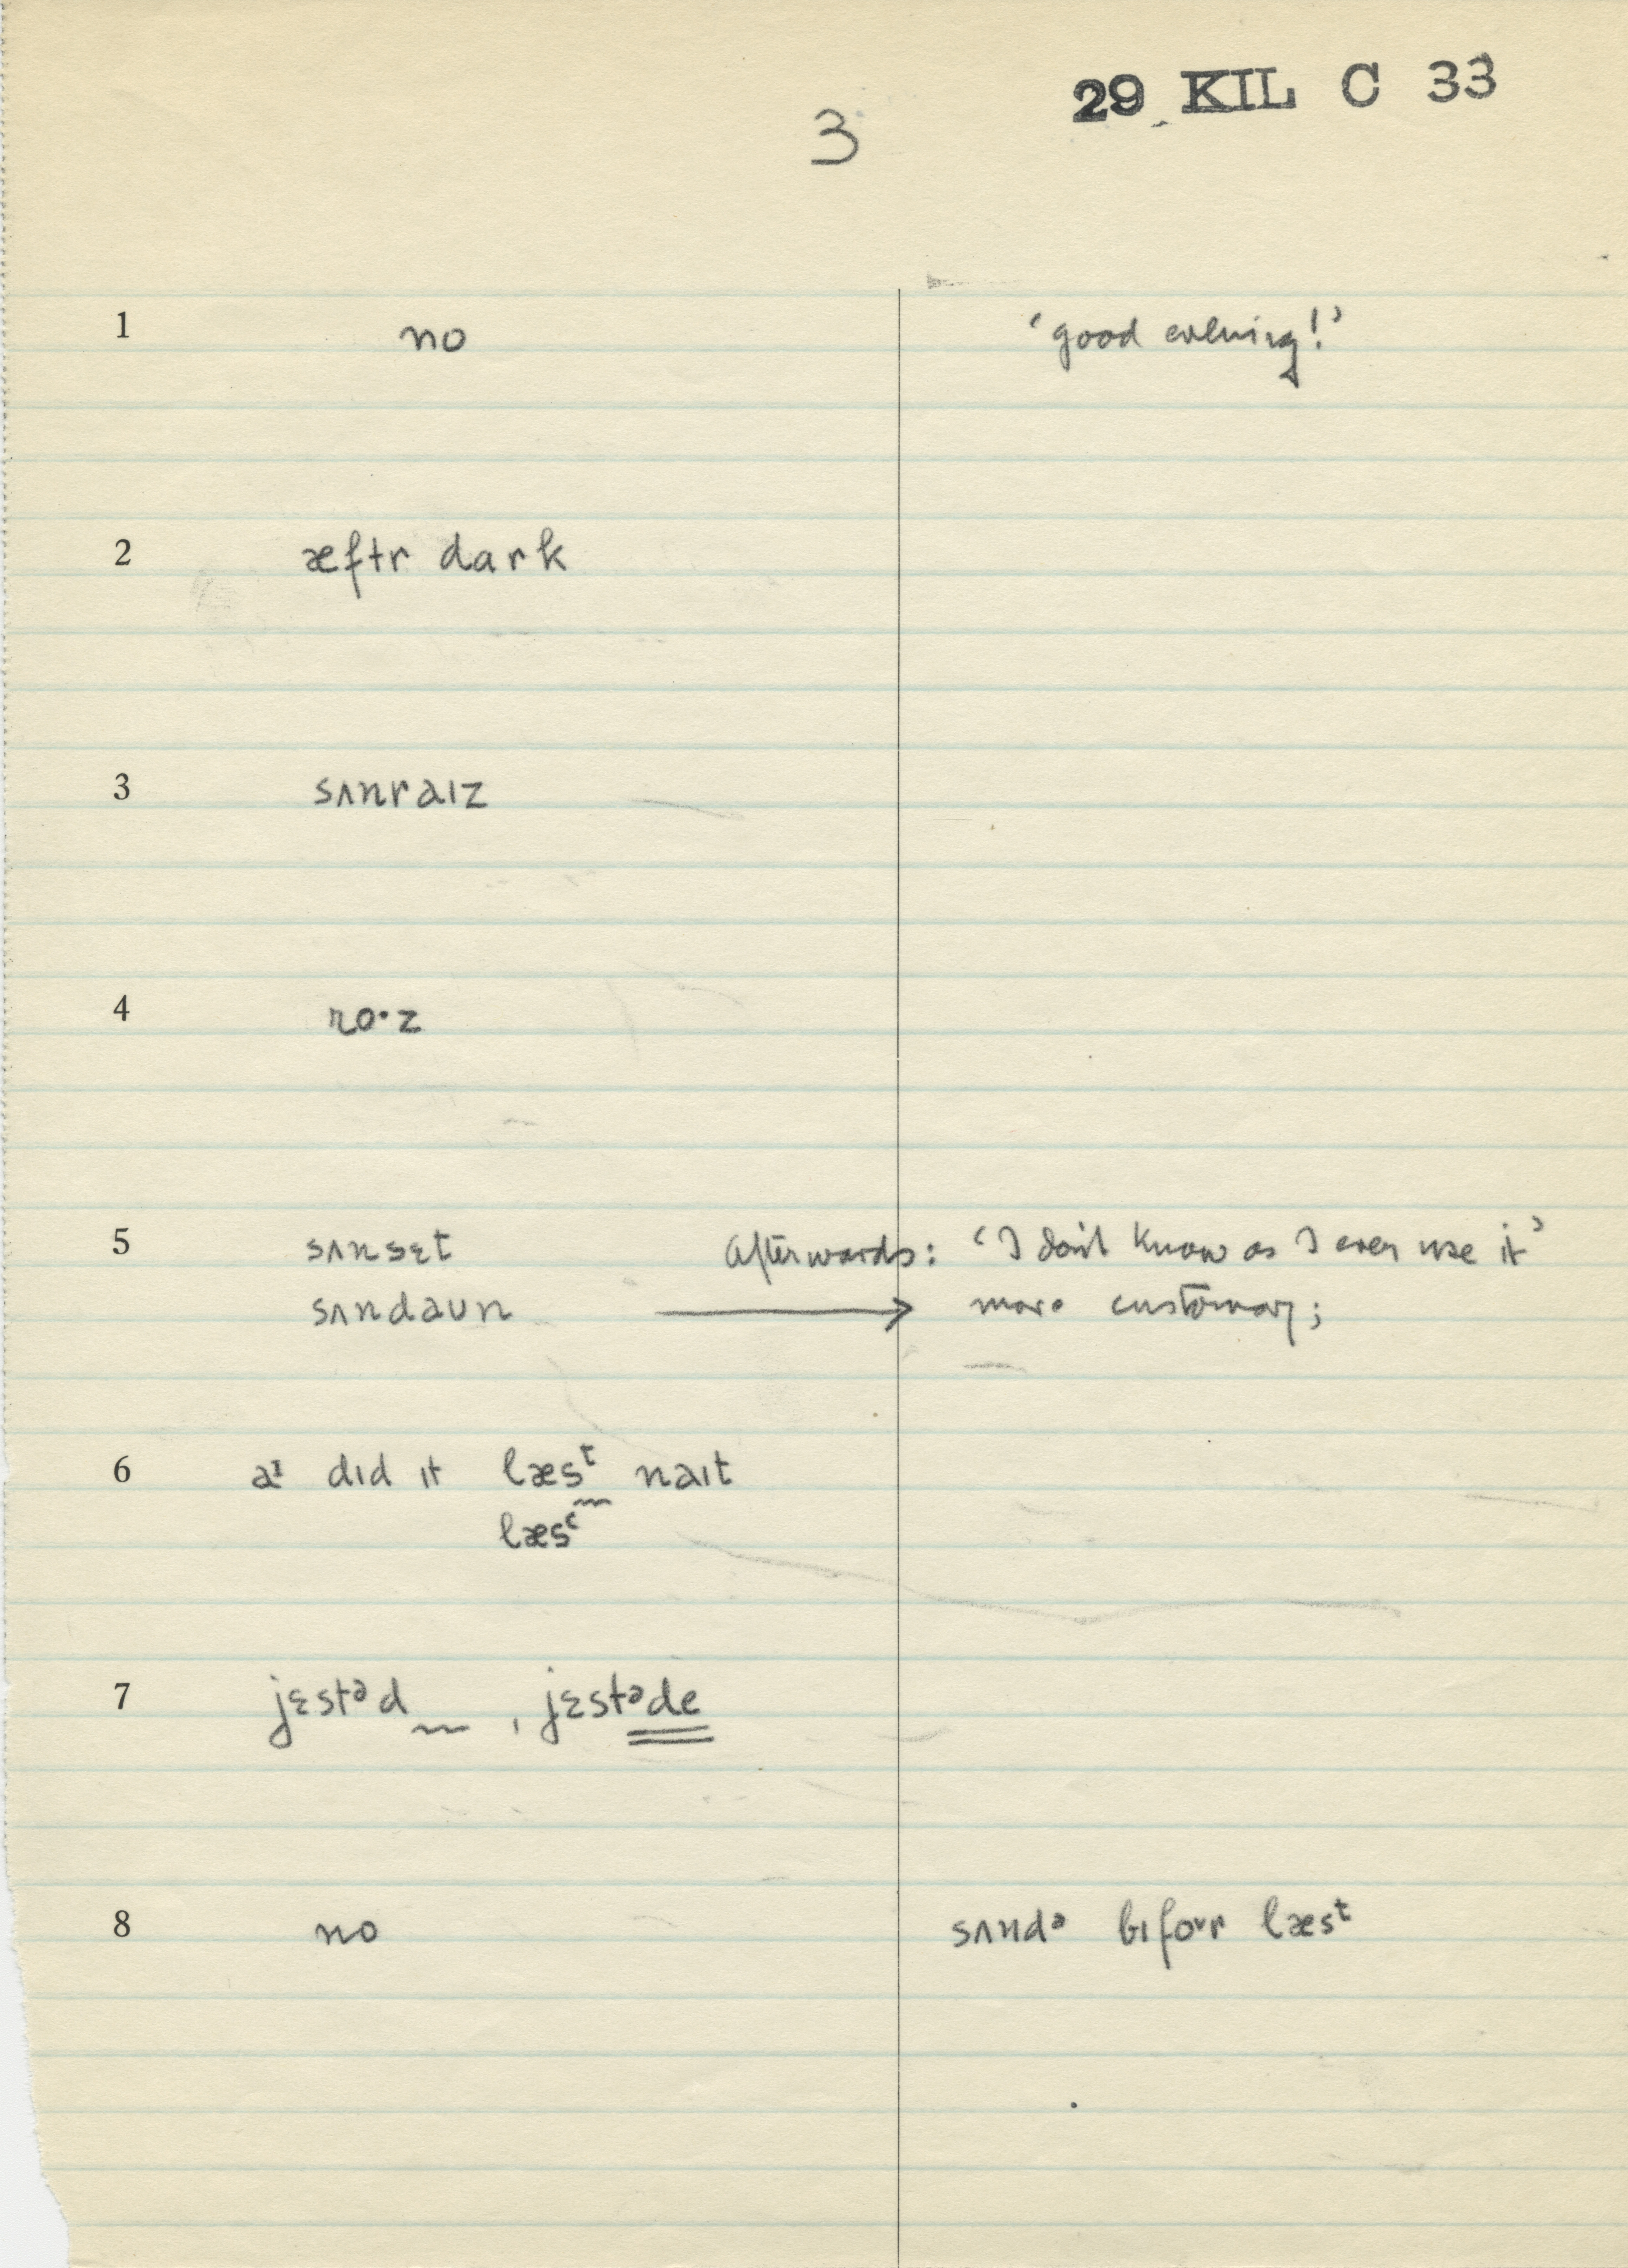 29 KIL C 33
3
1 no ‘good evening!’
2 æftr dark
3 sʌnraɪz
4 ro·z
5 sʌnsɛt Afterwards: ‘I don't know as I ever use it’
sʌndaun → more customary;
6 aᶦ dɪd ɪt læsᵗ naɪt
læsᵗ
7 jɛstᵊd , jɛstᵊde
8 no sʌndᵊ bɪfoᶹr læsᵗ